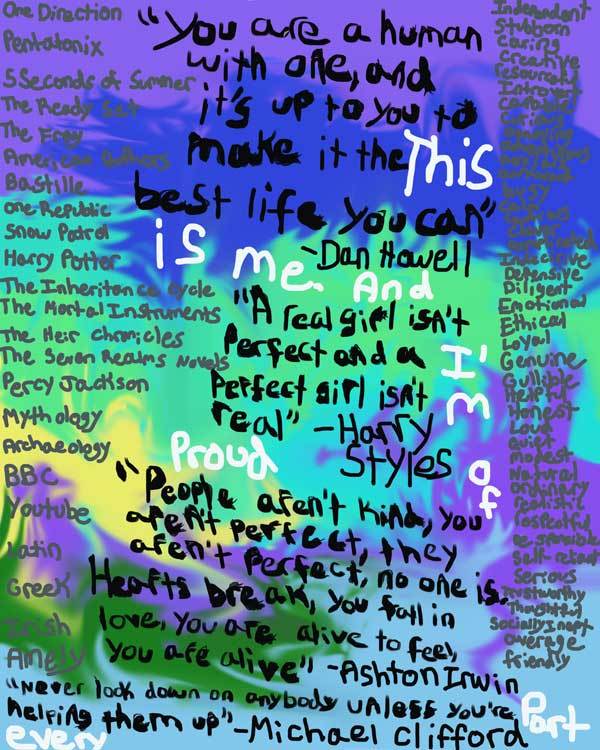 One Direction
Pentatonix
5 Seconds of Summer
The Ready Set
The Fray
American Authors
Bastille
One Republic
Snow Patrol
Harry Potter
The Inheritance Cycle
The Mortal Instruments
The Heir Chronicles
The Seven Realms Novels
Percy Jackson
Mythology
Archaeology
BBC
Youtube
Latin
Greek
Irish
"You are a human
with one, and
it's up to you to
make it the
best life you can"
-Dan Howell
"A real girl isn't
Perfect and a
Perfect girl isn't
real" -Harry
Styles
"People aren't kind, you
aren't perfect, they
aren't perfect, no one is.
Hearts break, you fall in
love, you are alive to feel,
you are alive" -Ashton Irwin
"Never look down on anybody unless you're
helping them up" -Michael Clifford
This
is me. And
I'm
Proud
of
every
Part
Independent
Stubborn
Caring
Creative
Introvert
Curious
Indecisive
Defensive
Diligent
Emotional
Ethical
Loyal
Genuine
Gullible
Helpful
Honest
Loud
Quiet
Modest
Natural
ordinary
realistic
respectful
responsible
Serious
trustworthy
Thoughtful
Socially inept
average
friendly